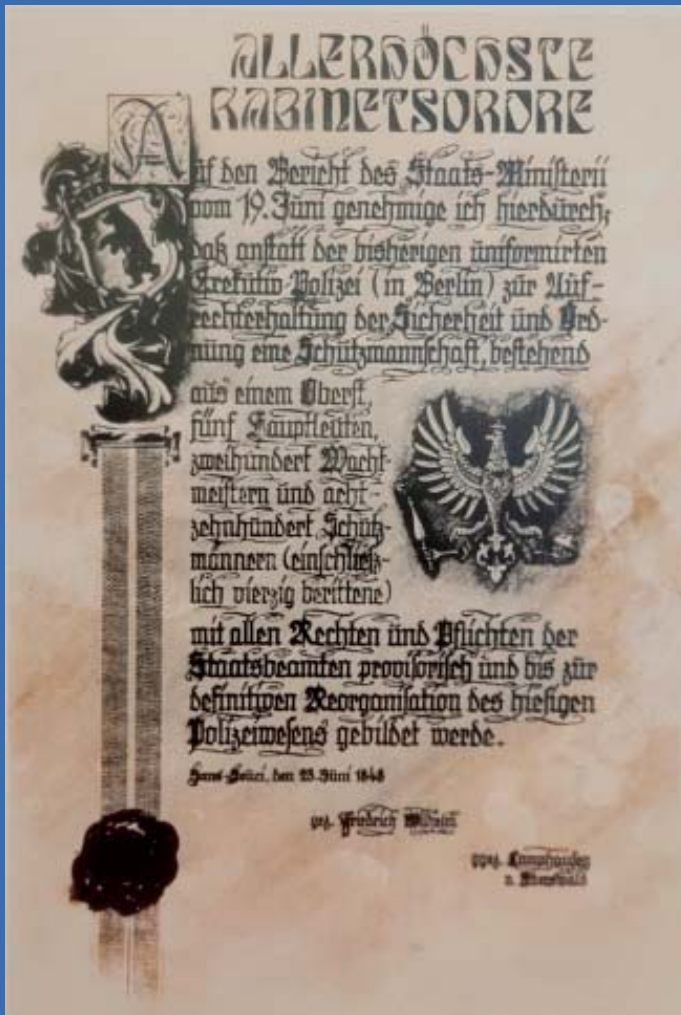 ALLERHÖCHSTE
KABINETSORDRE
Auf den Bericht des Staats-Ministerii
vom 19. Juni genehmige ich hierdurch,
daß anstatt der bisherigen uniformirten
Exekutiv-Polizei (in Berlin) zur Auf-
rechterhaltung der Sicherheit und Ord-
nung eine Schutzmannschaft, bestehend
aus einem Oberst,
fünf Hauptleuten,
zweihundert Wacht-
meistern und acht-
zehnhundert Schutz-
männern (einschließ-
lich vierzig berittene)
mit allen Rechten und Pflichten der
Staatsbeamten provisorisch und bis zur
definitiven Reorganisation des hiesigen
Polizeiwesens gebildet werde.
Sans-Souci, den 23. Juni 1848
gez. Friedrich Wilhelm
ggez. Camphausen
v.